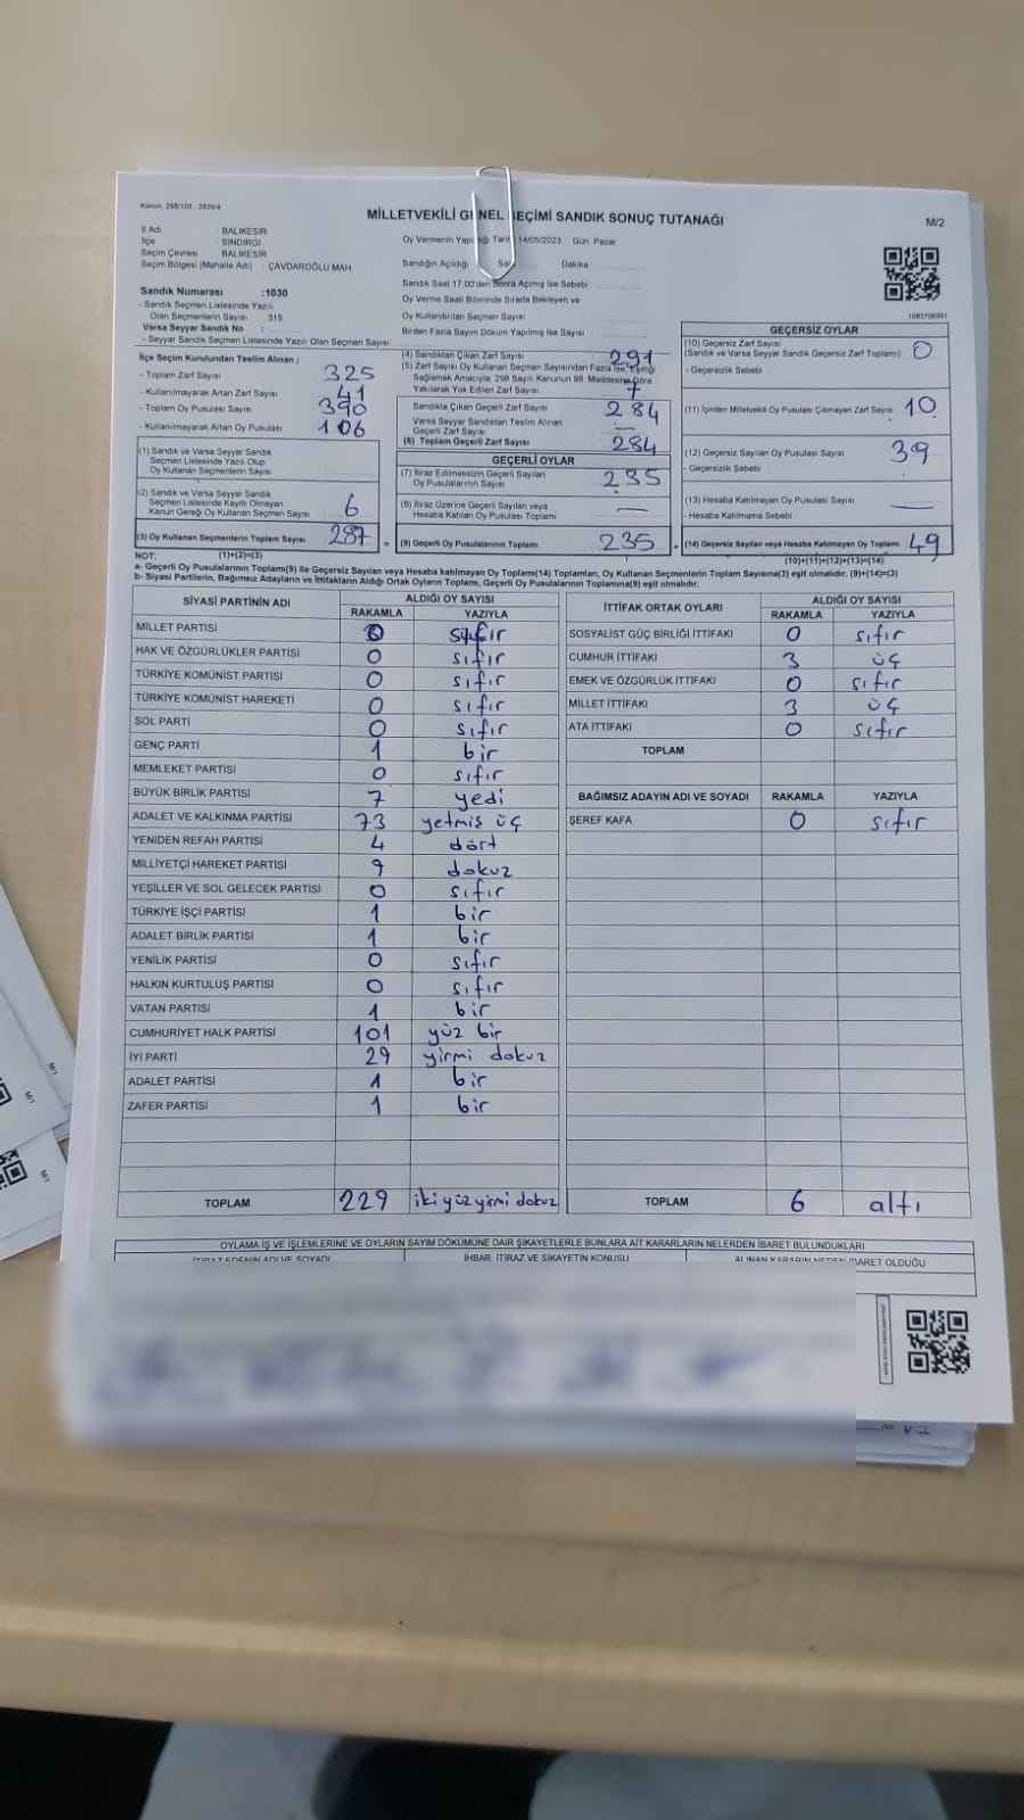 MİLLETVEKİLİ GENEL SEÇİMİ SANDIK SONUÇ TUTANAĞI
M/2
İl Adı BALIKESİR
İlçe SINDIRGI
Seçim Çevresi BALIKESİR
Seçim Bölgesi (Mahalle Adı) ÇAVDAROĞLU MAH
Oy Vermenin Tarihi 14/05/2023 Gün Pazar
Sandığın Açıldığı Dakika
Sandık Saat 17.00'den Sonra Açılmış İse Sebebi
Oy Verme Saati Bitiminde Sırada Bekleyen ve
Oy Kullandırılan Seçmen Sayısı
Birden Fazla Sayım Döküm Yapılmış İse Sayısı
Sandık Numarası :1030
- Sandık Seçmen Listesinde Yazılı
Olan Seçmenlerin Sayısı 315
Varsa Seyyar Sandık No :
- Seyyar Sandık Seçmen Listesinde Yazılı Olan Seçmen Sayısı
İlçe Seçim Kurulundan Teslim Alınan ;
- Toplam Zarf Sayısı 325
- Kullanılmayarak Artan Zarf Sayısı 41
- Toplam Oy Pusulası Sayısı 390
- Kullanılmayarak Artan Oy Pusulası 106
(1) Sandık ve Varsa Seyyar Sandık
Seçmen Listesinde Yazılı Olup
Oy Kullanan Seçmenlerin Sayısı
(2) Sandık ve Varsa Seyyar Sandık
Seçmen Listesinde Kayıtlı Olmayan
Kanun Gereği Oy Kullanan Seçmen Sayısı 6
(3) Oy Kullanan Seçmenlerin Toplam Sayısı 287
NOT: (1)+(2)=(3)
(4) Sandıktan Çıkan Zarf Sayısı 291
(5) Zarf Sayısı Oy Kullanan Seçmen Sayısından Fazla İse, Eşitliği
Sağlamak Amacıyla, 298 Sayılı Kanunun 98. Maddesine Göre
Yakılarak Yok Edilen Zarf Sayısı 7
Sandıkta Çıkan Geçerli Zarf Sayısı 284
Varsa Seyyar Sandıktan Teslim Alınan
Geçerli Zarf Sayısı —
(6) Toplam Geçerli Zarf Sayısı 284
GEÇERLİ OYLAR
(7) İtiraz Edilmeksizin Geçerli Sayılan
Oy Pusulalarının Sayısı 235
(8) İtiraz Üzerine Geçerli Sayılan veya
Hesaba Katılan Oy Pusulası Toplamı —
(9) Geçerli Oy Pusulalarının Toplamı 235
GEÇERSİZ OYLAR
(10) Geçersiz Zarf Sayısı
(Sandık ve Varsa Seyyar Sandık Geçersiz Zarf Toplamı) 0
- Geçersizlik Sebebi
(11) İçinden Milletvekili Oy Pusulası Çıkmayan Zarf Sayısı 10
(12) Geçersiz Sayılan Oy Pusulası Sayısı 39
- Geçersizlik Sebebi
(13) Hesaba Katılmayan Oy Pusulası Sayısı —
- Hesaba Katılmama Sebebi
(14) Geçersiz Sayılan veya Hesaba Katılmayan Oy Toplamı 49
(10)+(11)+(12)+(13)=(14)
a- Geçerli Oy Pusulalarının Toplamı(9) ile Geçersiz Sayılan veya Hesaba katılmayan Oy Toplamı(14) Toplamları, Oy Kullanan Seçmenlerin Toplam Sayısına(3) eşit olmalıdır. (9)+(14)=(3)
b- Siyasi Partilerin, Bağımsız Adayların ve İttifakların Aldığı Ortak Oyların Toplamı, Geçerli Oy Pusulalarının Toplamına(9) eşit olmalıdır.
SİYASİ PARTİNİN ADI ALDIĞI OY SAYISI
RAKAMLA YAZIYLA
MİLLET PARTİSİ 0 sıfır
HAK VE ÖZGÜRLÜKLER PARTİSİ 0 sıfır
TÜRKİYE KOMÜNİST PARTİSİ 0 sıfır
TÜRKİYE KOMÜNİST HAREKETİ 0 sıfır
SOL PARTİ 0 sıfır
GENÇ PARTİ 1 bir
MEMLEKET PARTİSİ 0 sıfır
BÜYÜK BİRLİK PARTİSİ 7 yedi
ADALET VE KALKINMA PARTİSİ 73 yetmiş üç
YENİDEN REFAH PARTİSİ 4 dört
MİLLİYETÇİ HAREKET PARTİSİ 9 dokuz
YEŞİLLER VE SOL GELECEK PARTİSİ 0 sıfır
TÜRKİYE İŞÇİ PARTİSİ 1 bir
ADALET BİRLİK PARTİSİ 1 bir
YENİLİK PARTİSİ 0 sıfır
HALKIN KURTULUŞ PARTİSİ 0 sıfır
VATAN PARTİSİ 1 bir
CUMHURİYET HALK PARTİSİ 101 yüz bir
İYİ PARTİ 29 yirmi dokuz
ADALET PARTİSİ 1 bir
ZAFER PARTİSİ 1 bir
TOPLAM 229 iki yüz yirmi dokuz
İTTİFAK ORTAK OYLARI ALDIĞI OY SAYISI
RAKAMLA YAZIYLA
SOSYALİST GÜÇ BİRLİĞİ İTTİFAKI 0 sıfır
CUMHUR İTTİFAKI 3 üç
EMEK VE ÖZGÜRLÜK İTTİFAKI 0 sıfır
MİLLET İTTİFAKI 3 üç
ATA İTTİFAKI 0 sıfır
TOPLAM
BAĞIMSIZ ADAYIN ADI VE SOYADI RAKAMLA YAZIYLA
ŞEREF KAFA 0 sıfır
TOPLAM 6 altı
OYLAMA İŞ VE İŞLEMLERİNE VE OYLARIN SAYIM DÖKÜMÜNE DAİR ŞİKAYETLERLE BUNLARA AİT KARARLARIN NELERDEN İBARET BULUNDUKLARI
İTİRAZ EDENİN ADI VE SOYADI İHBAR, İTİRAZ VE ŞİKAYETİN KONUSU ALINAN KARARIN NEDEN İBARET OLDUĞU